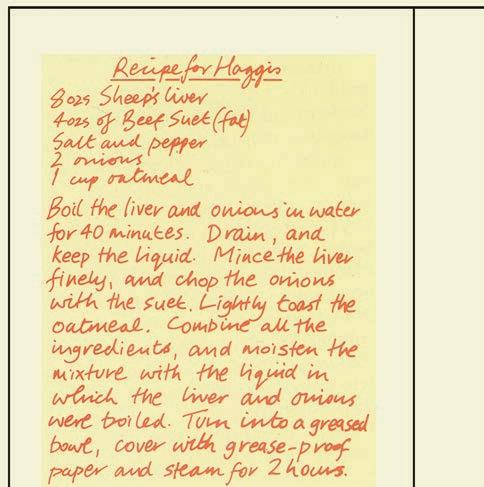 Recipe for Haggis
8ozs Sheep's liver
4ozs of Beef Suet (fat)
Salt and pepper
2 onions
1 cup oatmeal
Boil the liver and onions in water
for 40 minutes. Drain, and
keep the liquid. Mince the liver
finely, and chop the onions
with the suet. Lightly toast the
oatmeal. Combine all the
ingredients, and moisten the
mixture with the liquid in
which the liver and onions
were boiled. Turn into a greased
bowl, cover with grease-proof
paper and steam for 2 hours.